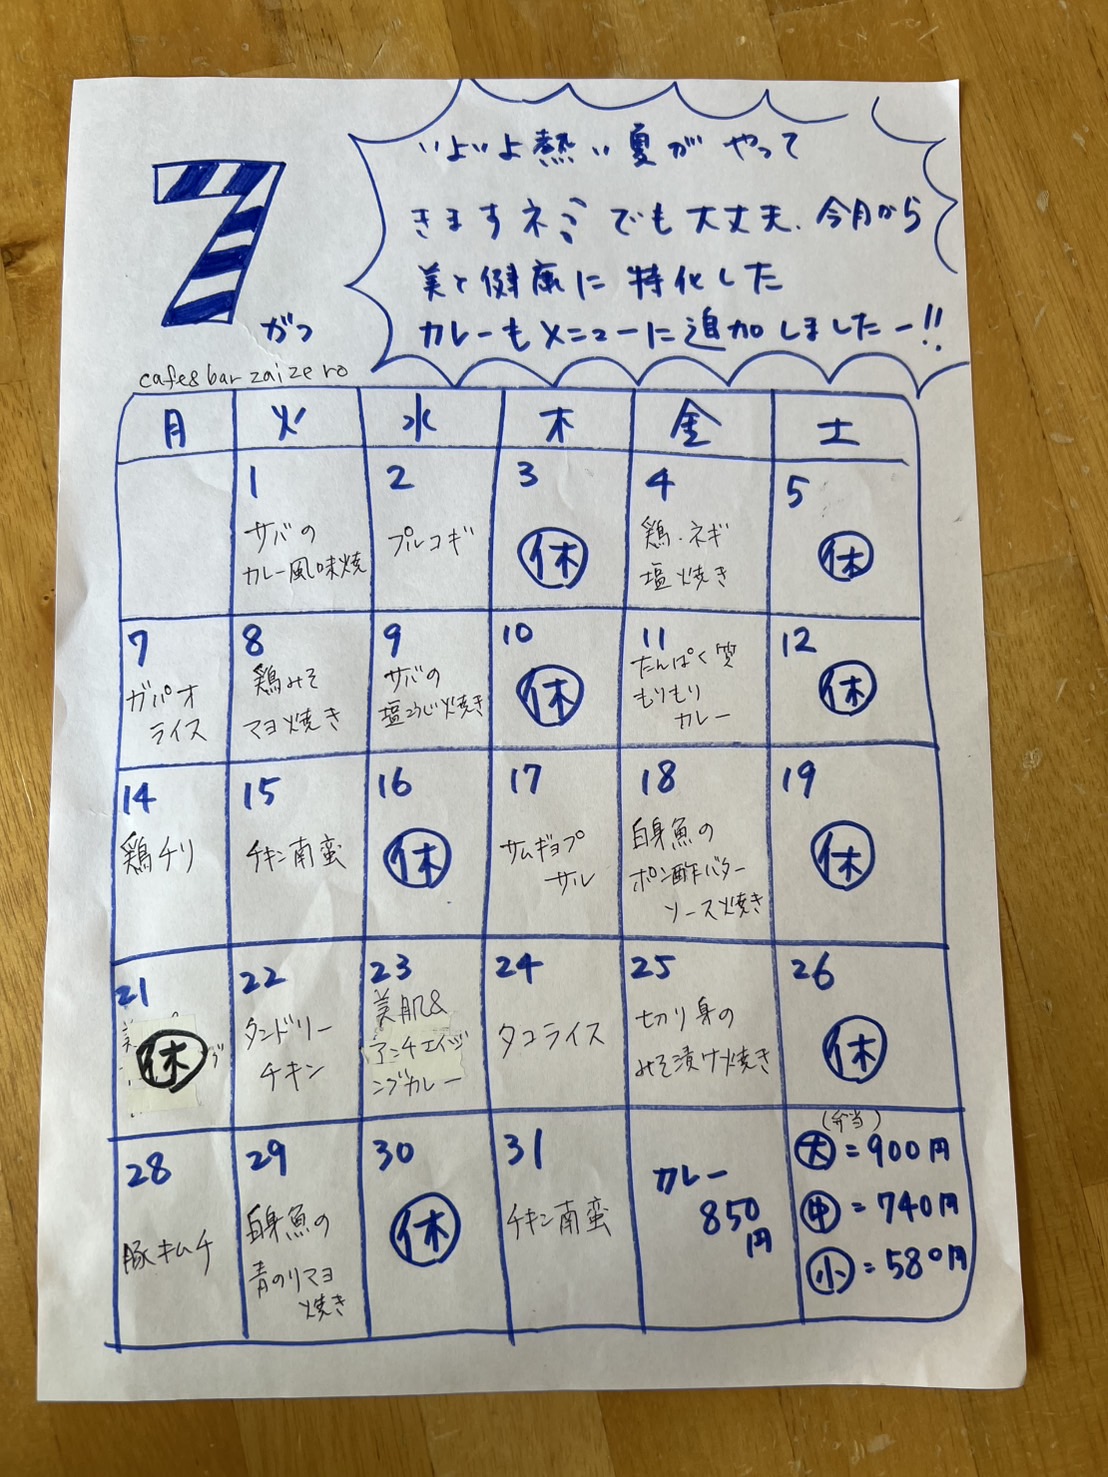 いよいよ熱い夏がやって
きますネミでも大丈夫、今月から
美と健康に特化した
カレーもメニューに追加しましたー!!
7がつ
cafe&bar zaizero
月 火 水 木 金 土
1
サバの
カレー風味焼
2
プルコギ
3
休
4
鶏・ネギ
塩焼き
5
休
7
ガパオ
ライス
8
鶏みそ
マヨ焼き
9
サバの
塩こうじ焼き
10
休
11
たんぱく質
もりもり
カレー
12
休
14
鶏チリ
15
チキン南蛮
16
休
17
サムギョプ
サル
18
白身魚の
ポン酢バター
ソース焼き
19
休
21
休
22
タンドリー
チキン
23
美肌&
アンチエイジ
ングカレー
24
タコライス
25
切り身の
みそ漬け焼き
26
休
28
豚キムチ
29
白身魚の
青のりマヨ
焼き
30
休
31
チキン南蛮
カレー
850
円
(弁当)
大=900円
中=740円
小=580円